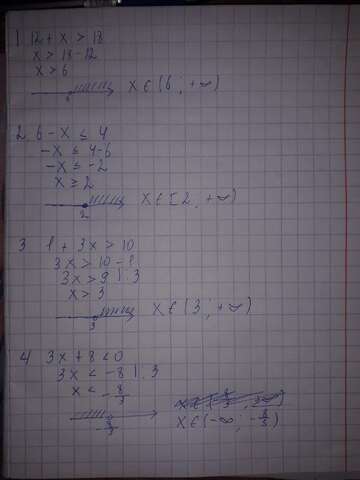 1. 12 + x > 18
x > 18 - 12
x > 6
6 x ∈ (6 ; +∞)
2. 6 - x ≤ 4
-x ≤ 4 - 6
-x ≤ -2
x ≥ 2
2 x ∈ [2 ; +∞)
3 1 + 3x > 10
3x > 10 - 1
3x > 9 | : 3
x > 3
3 x ∈ (3 ; +∞)
4) 3x + 8 < 0
3x < -8 | : 3
x < -8/3
-8/3 x ∈ (-∞ ; -8/3)